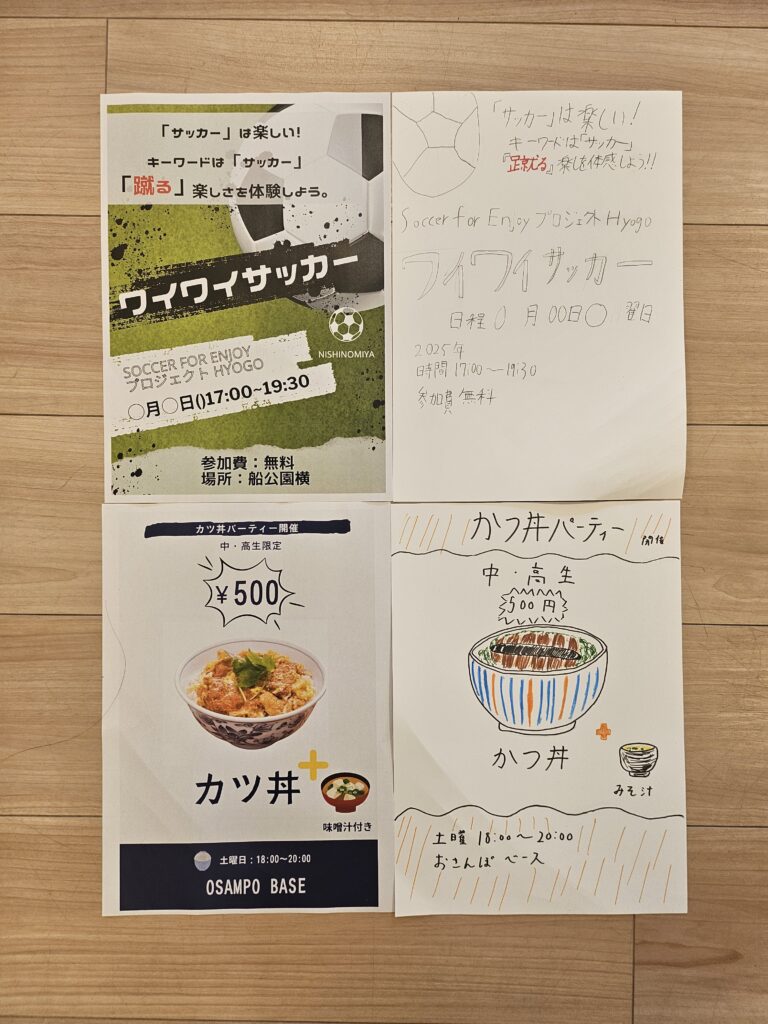 「サッカー」は楽しい!
キーワードは「サッカー」
「蹴る」楽しさを体験しよう。
ワイワイサッカー
NISHINOMIYA
SOCCER FOR ENJOY
プロジェクト HYOGO
〇月〇日()17:00~19:30
参加費：無料
場所：船公園横
「サッカー」は楽しい!
キーワードは「サッカー」
『蹴る』楽しを体感しよう!!
Soccer for Enjoy プロジェクト Hyogo
ワイワイサッカー
日程 0 月 00日〇 曜日
2025年
時間 17:00～19:30
参加費 無料
カツ丼パーティー開催
中・高生限定
¥500
カツ丼
味噌汁付き
土曜日：18:00～20:00
OSAMPO BASE
かつ丼パーティー
開催
中・高生
500円
かつ丼
みそ汁
土曜 18:00～20:00
おさんぽ ベース